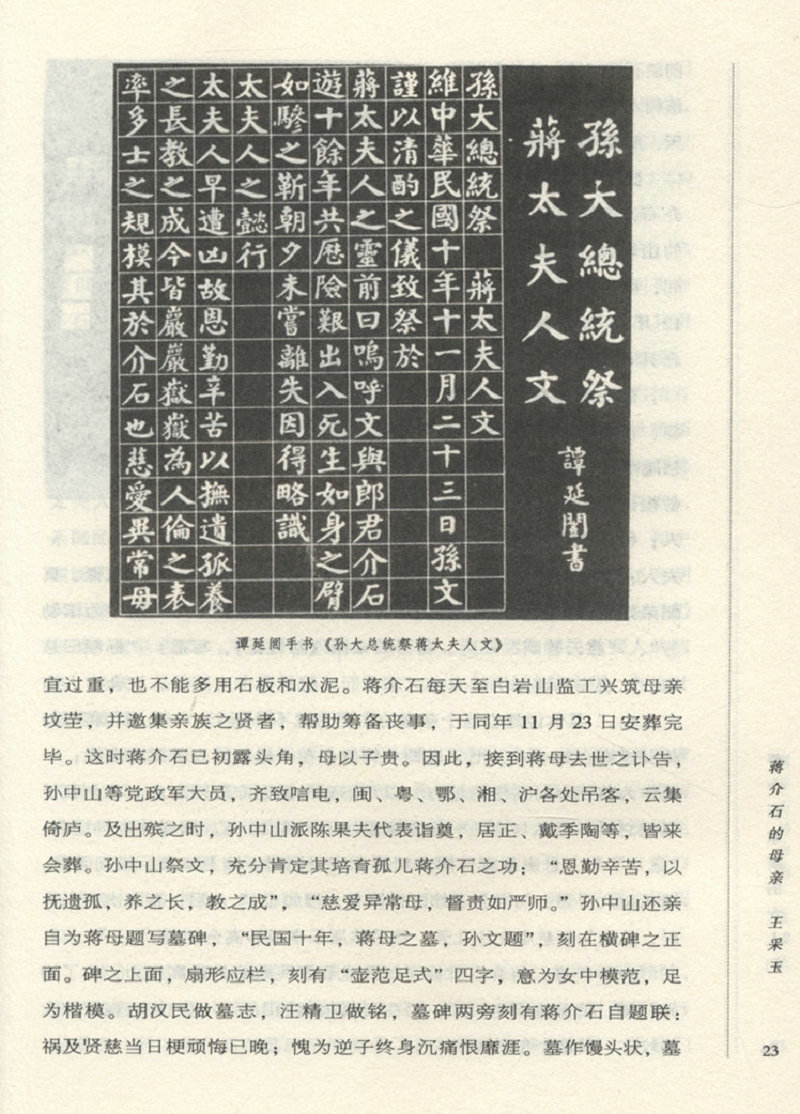 孫大總統祭
蔣太夫人文
譚延闓書
孫大總統祭 蔣太夫人文
維中華民國十年十一月二十三日孫文
謹以清酌之儀致祭於
蔣太夫人之靈前曰嗚呼文與郎君介石
遊十餘年共歷險艱出入死生如身之臂
如驂之靳朝夕未嘗離失因得略識
太夫人之懿行
太夫人早遭凶故恩勤辛苦以撫遺孤養
之長教之成今皆嚴嚴嶽嶽為人倫之表
率多士之規模其於介石也慈愛異常母
谭延闿手书《孙大总统祭蒋太夫人文》
宜过重，也不能多用石板和水泥。蒋介石每天至白岩山监工兴筑母亲
坟茔，并邀集亲族之贤者，帮助筹备丧事，于同年 11 月 23 日安葬完
毕。这时蒋介石已初露头角，母以子贵。因此，接到蒋母去世之讣告，
孙中山等党政军大员，齐致唁电，闽、粤、鄂、湘、沪各处吊客，云集
倚庐。及出殡之时，孙中山派陈果夫代表诣奠，居正、戴季陶等，皆来
会葬。孙中山祭文，充分肯定其培育孤儿蒋介石之功；“恩勤辛苦，以
抚遗孤，养之长，教之成”，“慈爱异常母，督责如严师。”孙中山还亲
自为蒋母题写墓碑，“民国十年，蒋母之墓，孙文题”，刻在横碑之正
面。碑之上面，扇形应栏，刻有“壶范足式”四字，意为女中模范，足
为楷模。胡汉民做墓志，汪精卫做铭，墓碑两旁刻有蒋介石自题联：
祸及贤慈当日梗顽悔已晚；愧为逆子终身沉痛恨靡涯。墓作馒头状，墓
蒋介石的母亲 王采玉
23